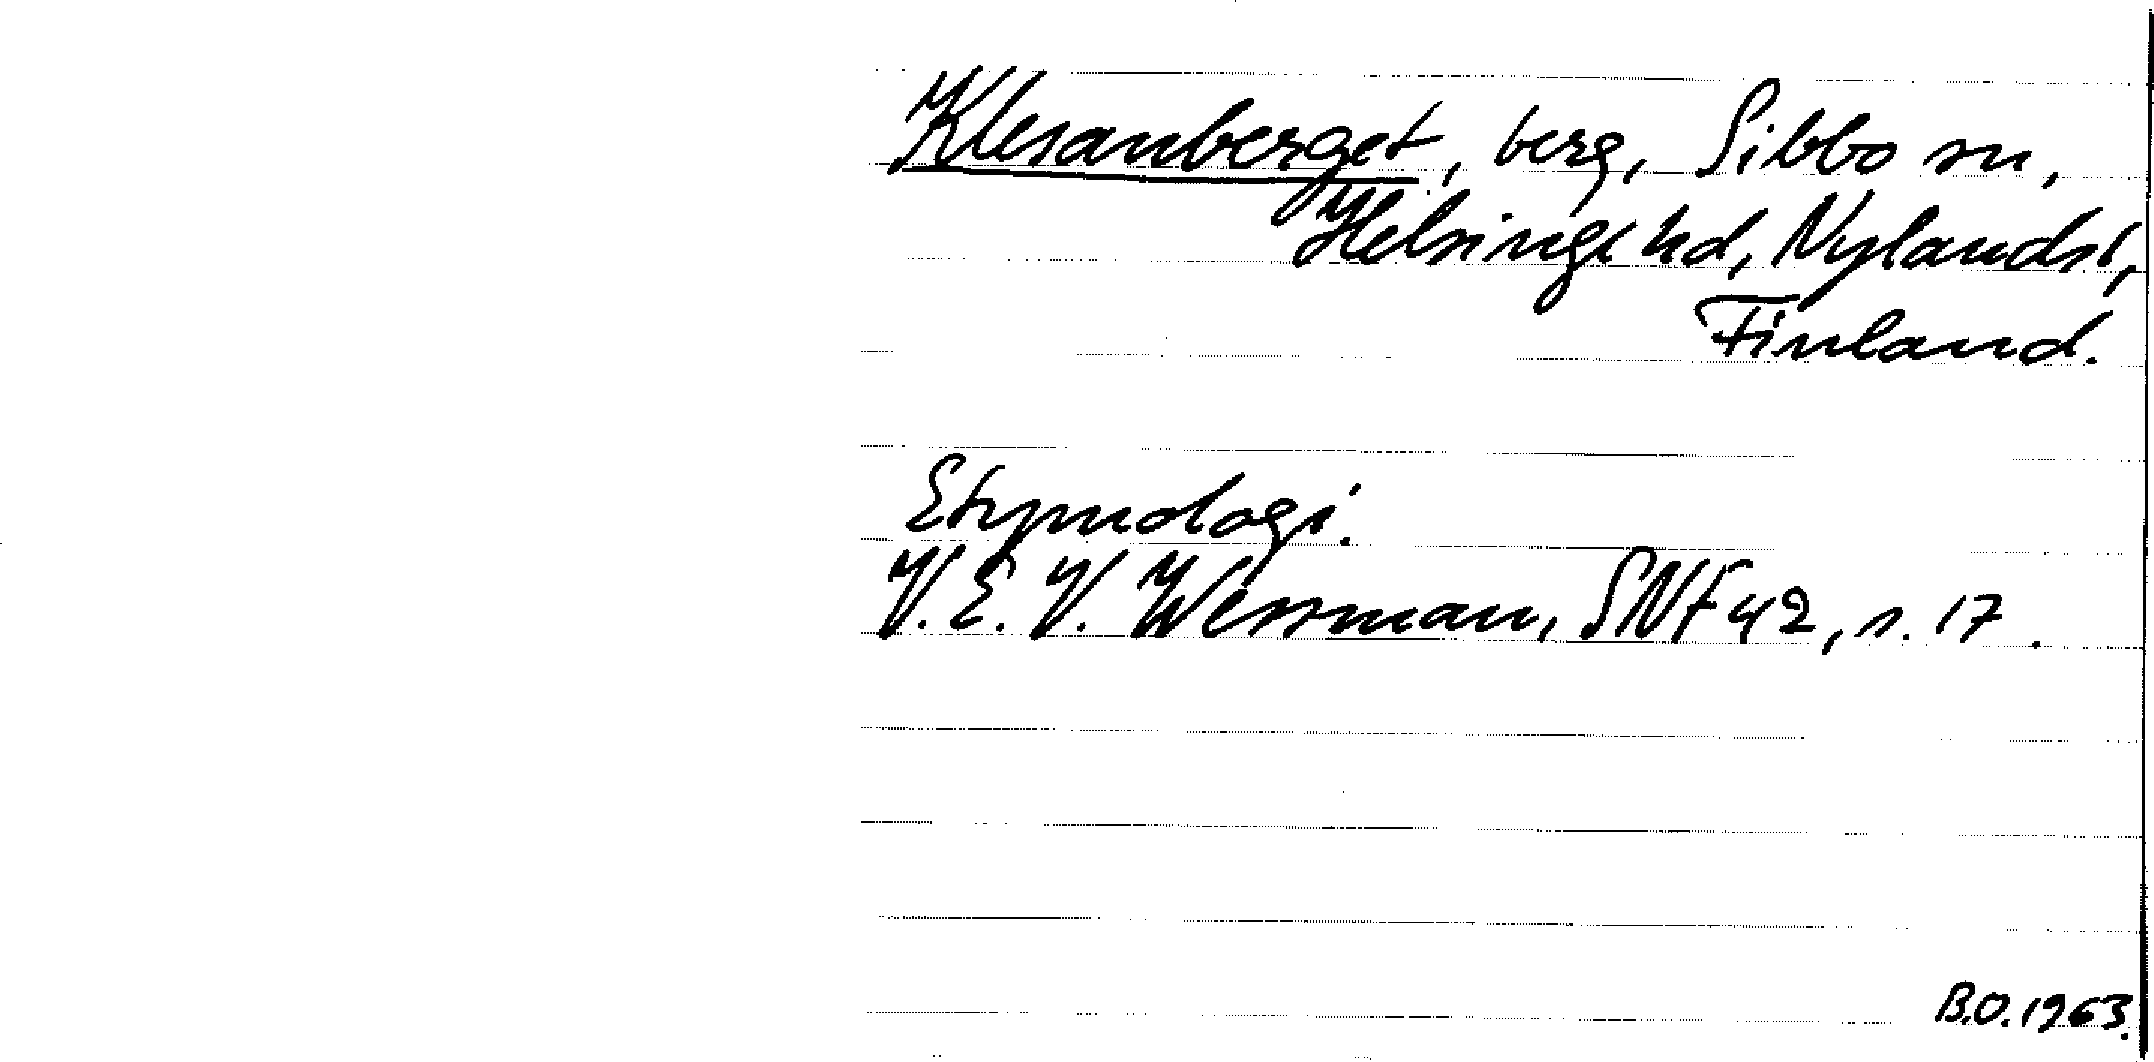 Klesanberget, berg, Sibbo sn,
Helsinge hd, Nylands l,
Finland.
Etymologi.
V. E. V. Wessman, SNF 42, s. 17.
B.O. 1963.